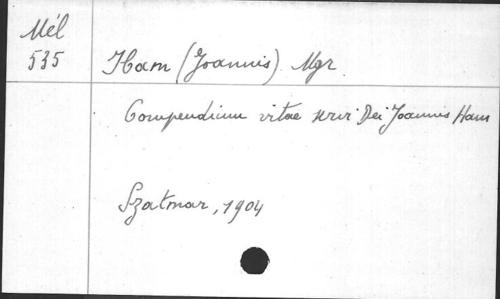 Mél
535
Ham (Joannis) Mgr.
Compendium vitae servi Dei Joannis Ham
Szatmar, 1904